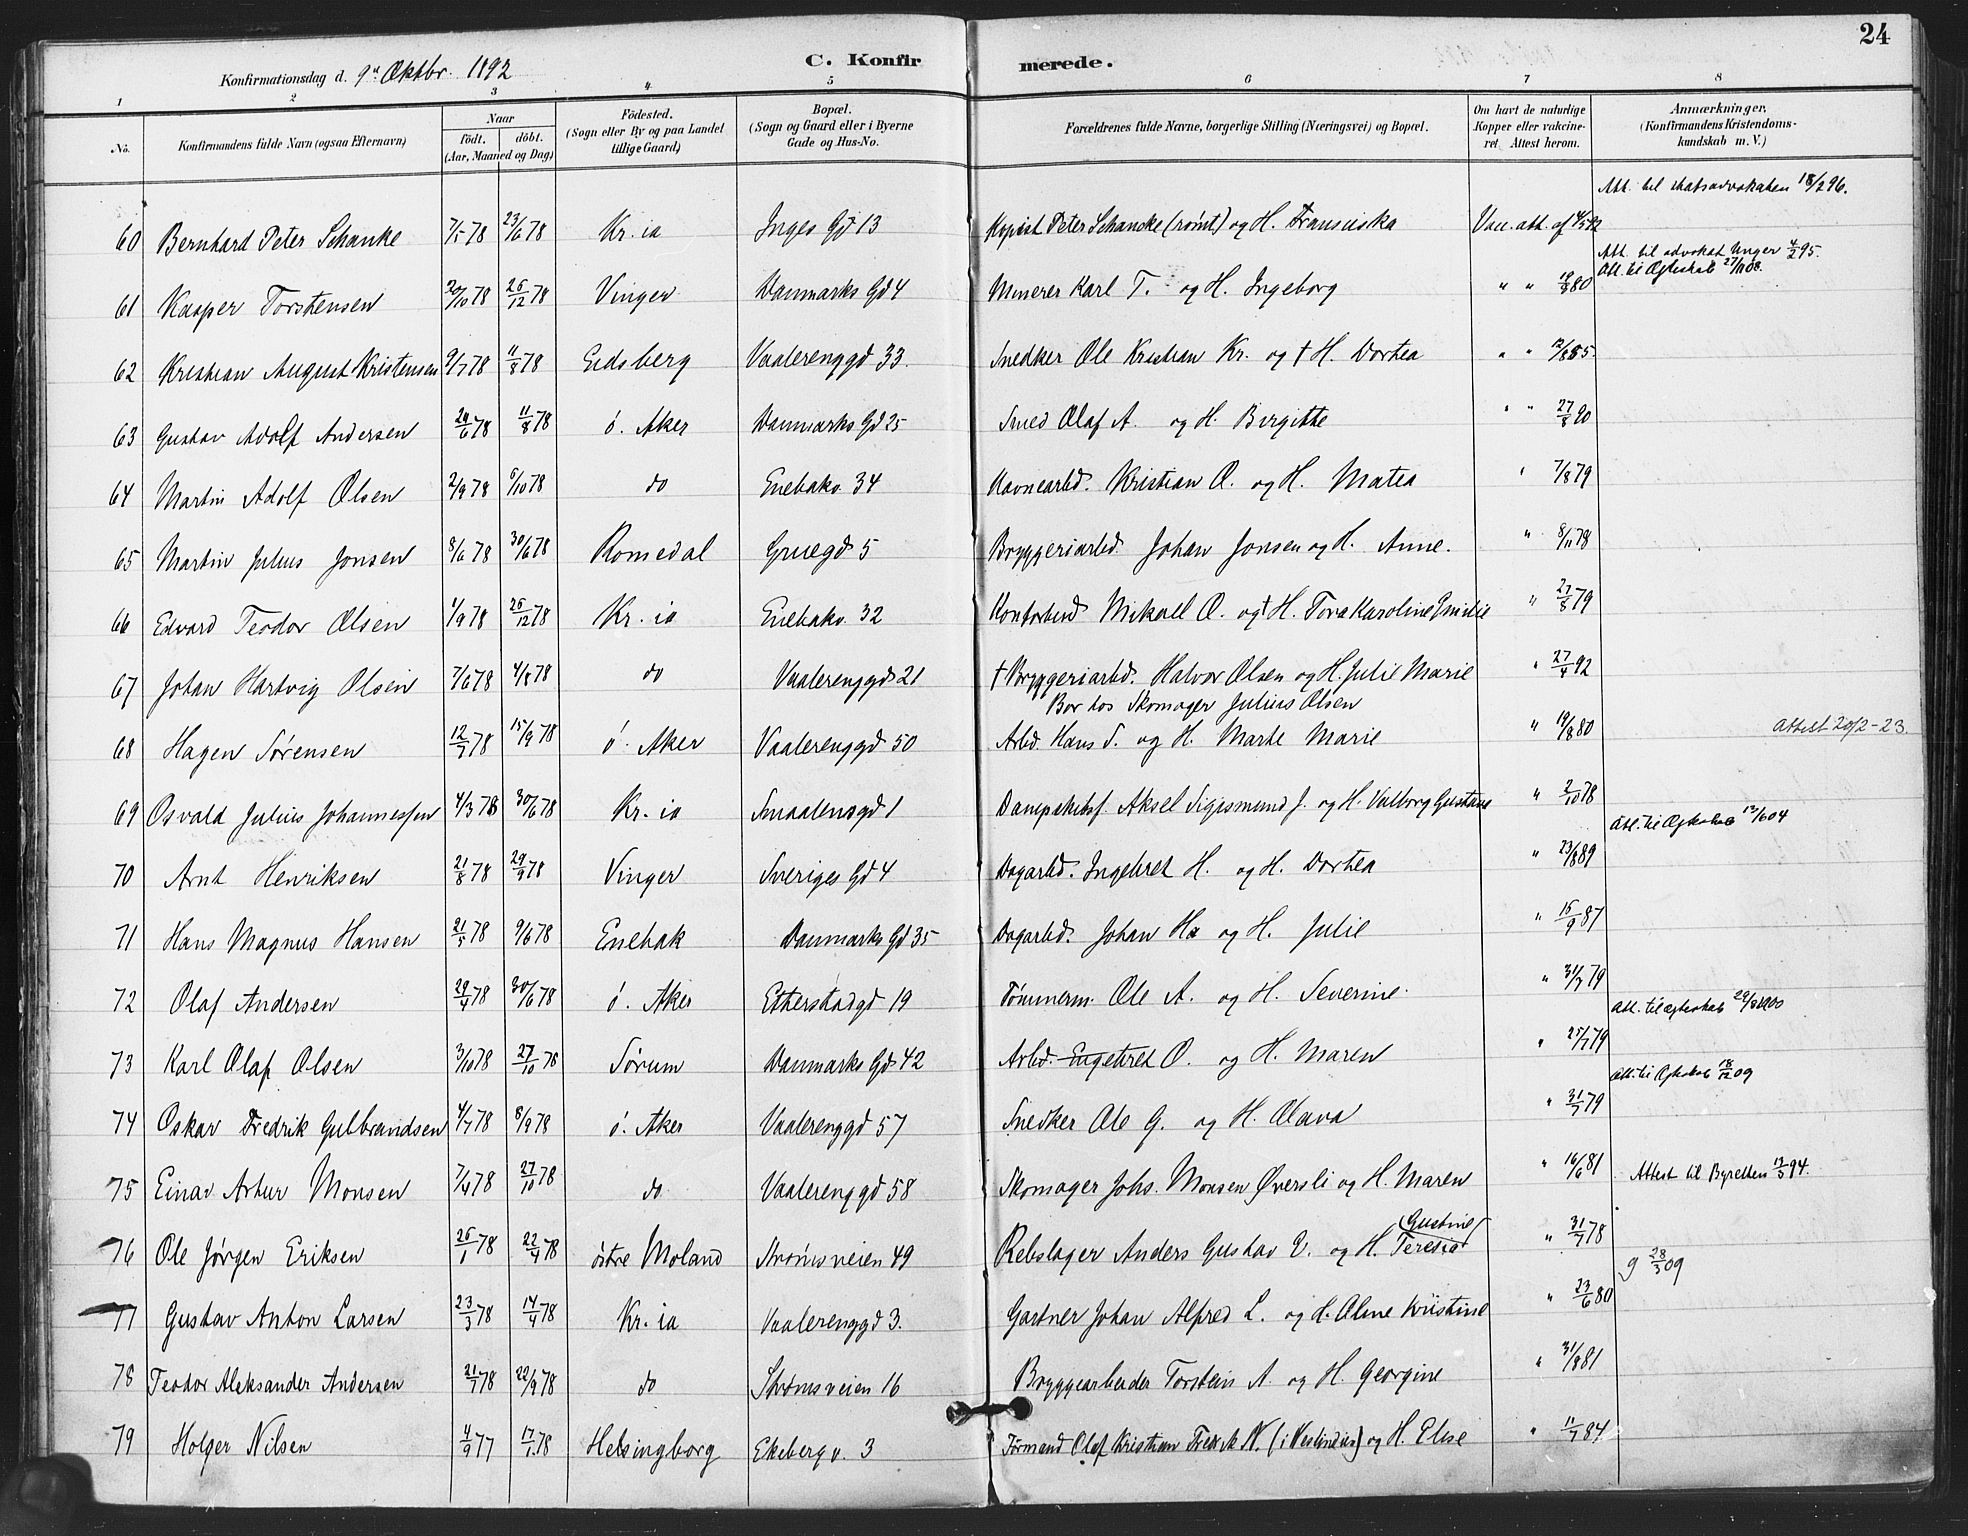 24
Konfirmationsdag d. 9de Oktbr. 1892
C. Konfirmerede.
1 2 3 4 5 6 7 8
No.
Konfirmandens fulde Navn (ogsaa Efternavn)
Naar
födt. döbt.
(Aar, Maaned og Dag)
Födested.
(Sogn eller By og paa Landet
tillige Gaard)
Bopæl.
(Sogn og Gaard eller i Byerne
Gade og Hus-No.
Forældrenes fulde Navne, borgerlige Stilling (Næringsvei) og Bopæl.
Om havt de naturlige
Kopper eller vakcine-
ret. Attest herom.
Anmærkninger.
(Konfirmandens Kristendoms-
kundskab m. V.)
Att. til statsadvokaten 18/2 96.
60 Bernhard Peter Schanke 7/5 78 23/6 78 Kr.ia Inges Gd 13 Kopist Peter Schancke (rømt) og H. Fransiska Vacc. att. af
Att. til advokat Unger 4/2 95.
Att. til Ægteskab 27/11 08.
61 Kasper Torstensen 20/10 78 26/12 78 Vinger Danmarks Gd 4 Minerer Karl T. og H. Ingeborg " " 18/9 80
62 Kristian August Kristensen 9/7 78 11/8 78 Eidsberg Vaalerenggd 33. Snedker Ole Kristian Kr. og † H. Dortea " " 12/8 85
63 Gustav Adolf Andersen 24/6 78 11/8 78 Ö. Aker Danmarks Gd 35 Smed Olaf A. og H. Birgitte " " 27/8 90
64 Martin Adolf Olsen 2/9 78 6/10 78 do Enebakv. 34 Havnearbd. Kristian O. og H. Matea " 7/8 79
65 Martin Julius Jonsen 8/6 78 30/6 78 Romedal Gruegd 5 Bryggeriarbd. Johan Jonsen og H. Anne. " 8/11 78
66 Edvard Teodor Olsen 1/9 78 26/12 78 Kr.ia Enebakv. 32 Kontorbud Mikael O. og † H. Tora Karoline Emilie " 27/8 79
67 Johan Hartvig Olsen 7/6 78 4/8 78 do Vaalerenggd 21 † Bryggeriarbd. Halvor Olsen og H. Julie Marie " 27/4 92
Bor hos Skomager Julius Olsen
68 Hagen Sørensen 12/7 78 15/9 78 Ö. Aker Vaalerenggd 50 Arbd. Hans S. og H. Marte Marie " 19/8 80 Attest 20/2-23.
69 Osvald Julius Johannessen 4/3 78 30/6 78 Kr.ia Smaalensgd 1 Aksel Sigismund J. og H. Valborg Gustava " 2/10 78
Att. til Ægteskab 12/6 04
70 Arnt Henriksen 21/8 78 29/9 78 Vinger Sveriges Gd 4 Dagarbd. Ingebret H. og H. Dortea " 23/8 89
71 Hans Magnus Hansen 21/5 78 9/6 78 Enebak Danmarks Gd 35 Dagarbd. Johan Ha og H. Julie " 16/9 87
72 Olaf Andersen 29/4 78 30/6 78 Ö. Aker Etterstadgd 19 Tømmerm. Ole A. og H. Severine. " 31/7 79
Att. til Ægteskab 29/3 1900
73 Karl Olaf Olsen 3/10 78 27/10 78 Sørum Danmarks Gd 42 Arbd. Engebret O. og H. Maren " 25/7 79
Att. til Ægteskab 18/12 09
74 Oskar Fredrik Gulbrandsen 4/7 78 8/9 78 Ö. Aker Vaalerenggd 57 Snedker Ole G. og H. Olava " 31/7 79
75 Einar Artur Monsen 7/4 78 27/10 78 do Vaalerenggd 58 Skomager Johs. Monsen Øversli og H. Maren " 16/6 81 Attest til Byretten 13/3 94.
76 Ole Jørgen Eriksen 26/1 78 22/4 78 Östre Moland Strømsveien 49 Rebslager Anders Gustav E. og H. Teresia (Gustine) " 31/7 78
g 28/3 09
77 Gustav Anton Larsen 23/3 78 14/4 78 Kr.ia Vaalerenggd 3. Gartner Johan Alfred L. og H. Oline Kristine " 23/6 80
78 Teodor Aleksander Andersen 21/7 78 22/9 78 do Strømsveien 16 Bryggearbeider Torstein A. og H. Georgine " 31/8 81
79 Holger Nilsen 4/9 77 17/1 78 Helsingborg Ekeberg v. 3 Formand Olaf Kristian Fredrik N. (i Vestindien) og H. Elise " 11/7 84